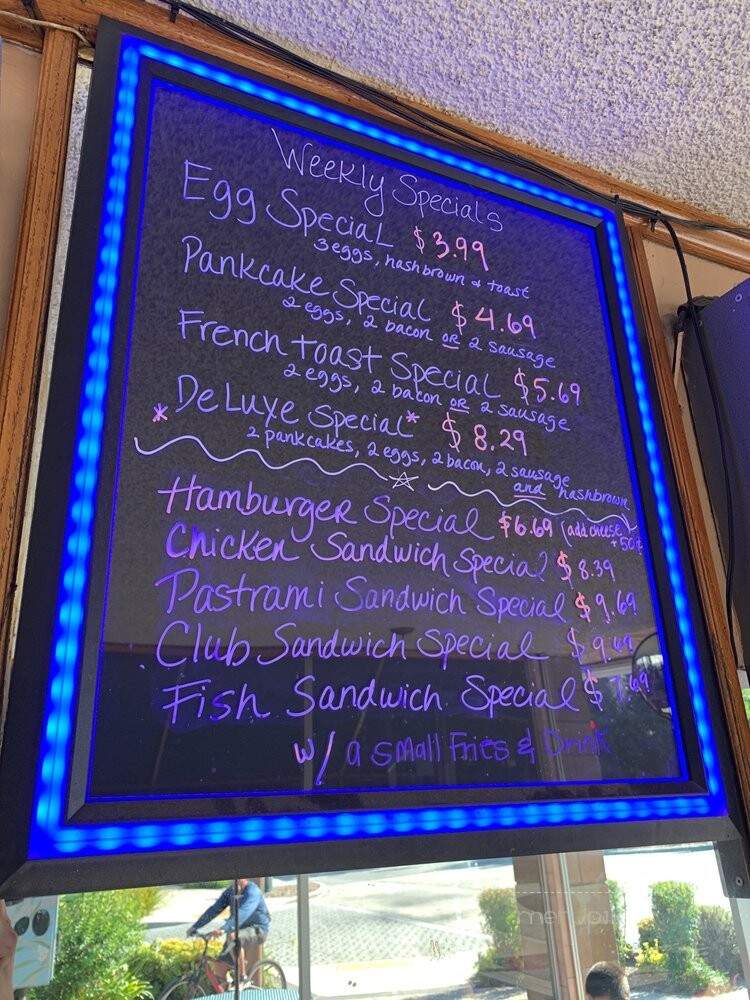 Weekly Specials
Egg Special $3.99
3 eggs, hashbrown & toast
Pankcake Special $4.69
2 eggs, 2 bacon OR 2 sausage
French Toast Special $5.69
2 eggs, 2 bacon OR 2 sausage
*DeLuxe Special* $8.29
2 pankcakes, 2 eggs, 2 bacon, 2 sausage
and hashbrown
Hamburger Special $6.69 (add cheese
+50¢
Chicken Sandwich Special $8.39
Pastrami Sandwich Special $9.69
Club Sandwich Special $9.69
Fish Sandwich Special $7.69
w/ a small Fries & Drink